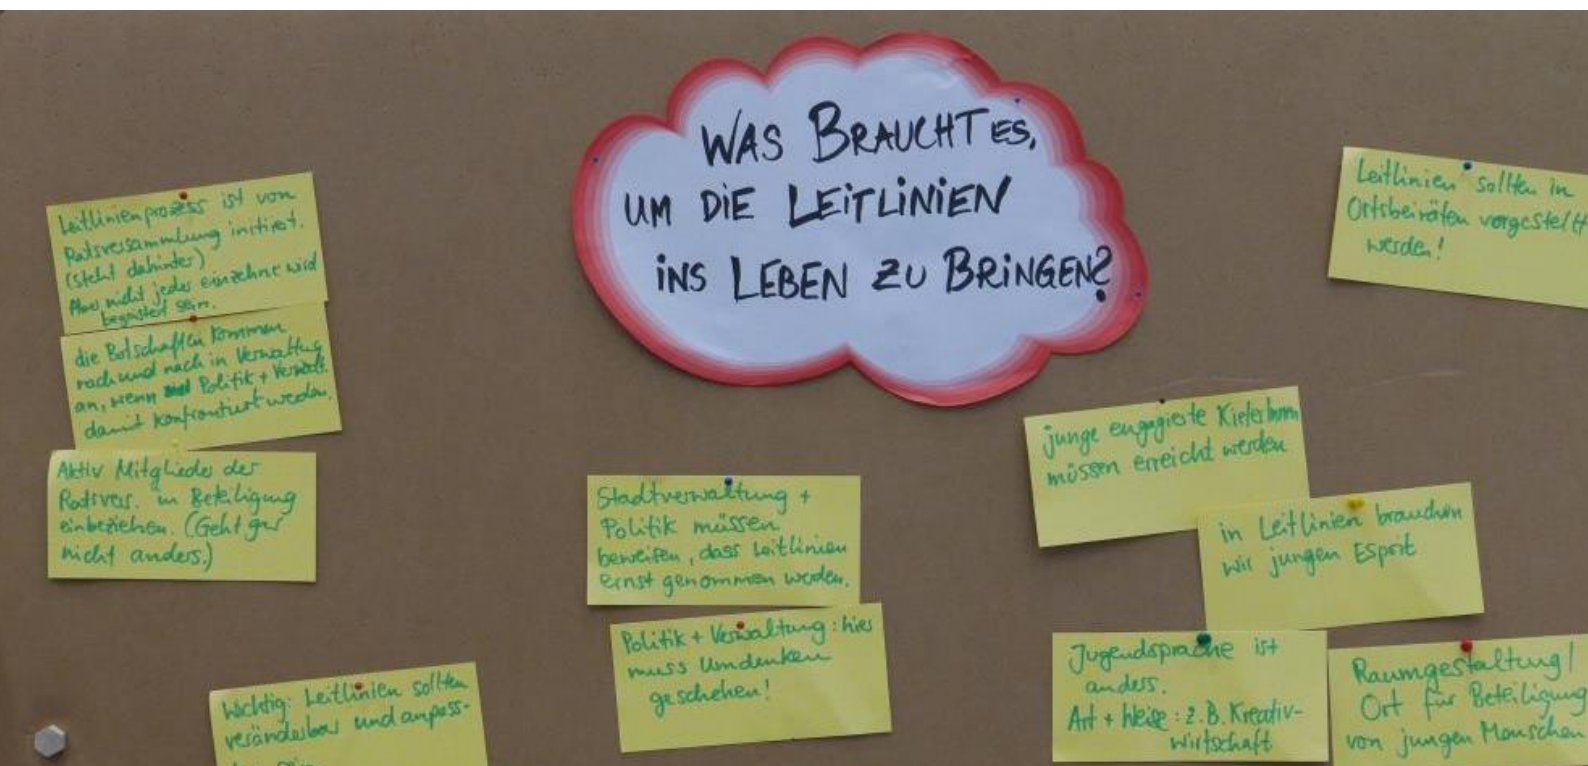 WAS BRAUCHT ES,
UM DIE LEITLINIEN
INS LEBEN ZU BRINGEN?
Leitlinienprozess ist von
Ratsversammlung initiiert.
(steht dahinter)
Aber nicht jeder einzelne wird
begeistert sein.
die Botschaften kommen
nach und nach in Verwaltung
an, wenn Politik + Verwalt.
damit konfrontiert werden.
Aktiv Mitglieder der
Ratsvers. in Beteiligung
einbeziehen. (Geht gar
nicht anders.)
Wichtig: Leitlinien sollten
veränderbar und anpass-
Stadtverwaltung +
Politik müssen
beweisen, dass Leitlinien
ernst genommen werden.
Politik + Verwaltung: hier
muss Umdenken
geschehen!
junge engagierte KielerInnen
müssen erreicht werden
in Leitlinien brauchen
wir jungen Esprit
Jugendsprache ist
anders.
Art + Weise: z.B. Kreativ-
wirtschaft
Raumgestaltung/
Ort für Beteiligung
von jungen Menschen
Leitlinien sollten in
Ortsbeiräten vorgestellt
werden!